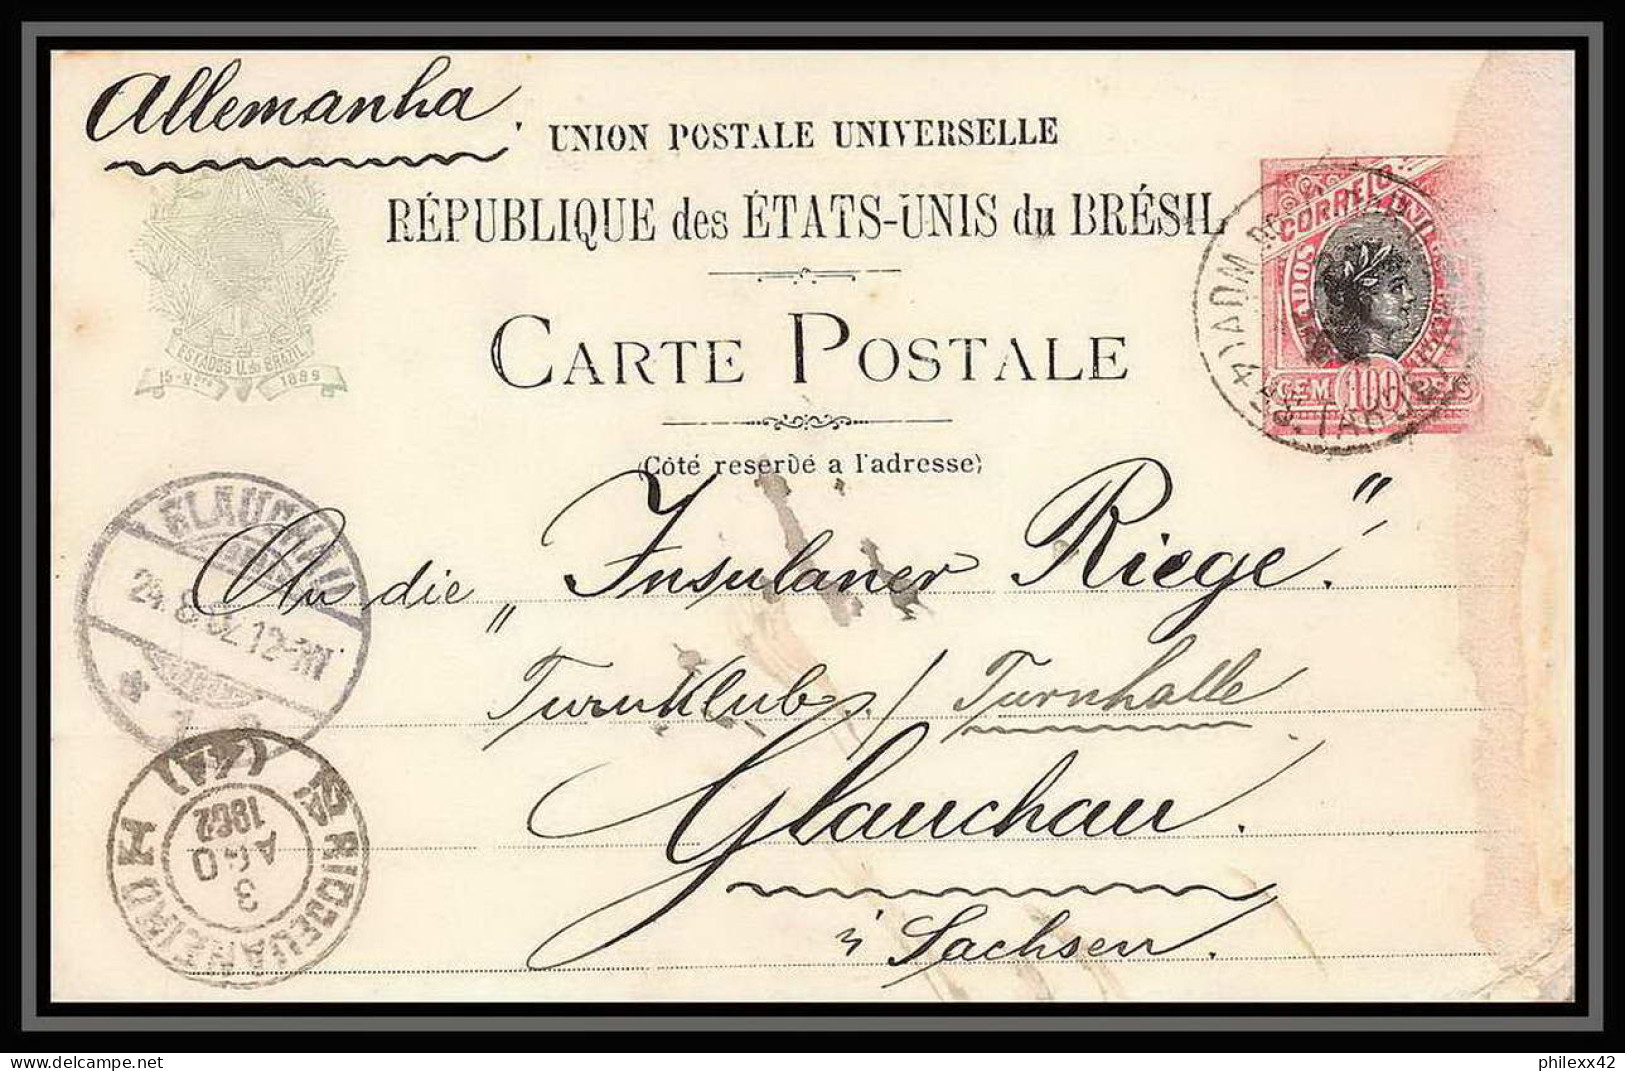 Allemanha
UNION POSTALE UNIVERSELLE
RÉPUBLIQUE des ÉTATS-UNIS du BRÉSIL
CORREIO
ESTADOS U. do BRAZIL
15-Nbro 1889
CEM 100 REIS
CARTE POSTALE
(Côté reservé a l'adresse)
GLAUCHAU
24.8.02.12-
An die „Insulaner Riege."
Turnklub / Turnhalle
Glauchau.
i/ Sachsen.
RIO DE JANEIRO
3
AGO
1902
philexx42